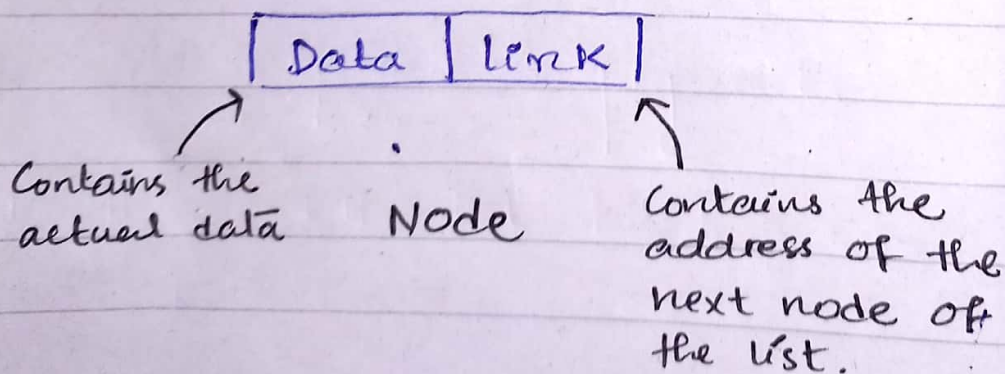 Data link
Contains the
actual data
Node
Contains the
address of the
next node of
the list.